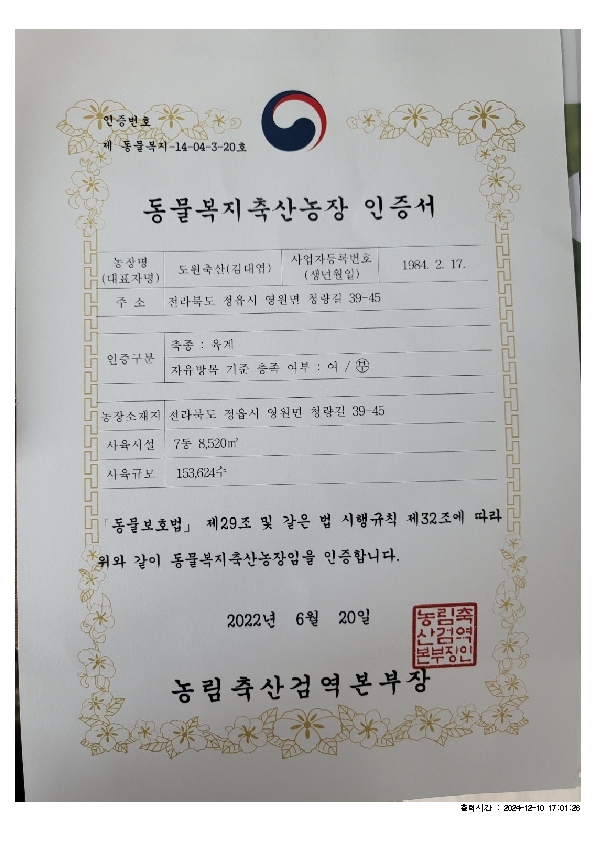 인증번호
제 동물복지-14-04-3-20호
동물복지축산농장 인증서
농장명
(대표자명)
도원축산(김대엽)
사업자등록번호
(생년월일)
1984. 2. 17.
주 소
전라북도 정읍시 영원면 청량길 39-45
인증구분
축종 : 육계
자유방목 기준 충족 여부 : 여 / 부
농장소재지
전라북도 정읍시 영원면 청량길 39-45
사육시설
7동 8,520㎡
사육규모
153,624수
「동물보호법」 제29조 및 같은 법 시행규칙 제32조에 따라
위와 같이 동물복지축산농장임을 인증합니다.
2022년 6월 20일
농림축
산검역
본부장인
농림축산검역본부장
출력시간 : 2024-12-10 17:01:26